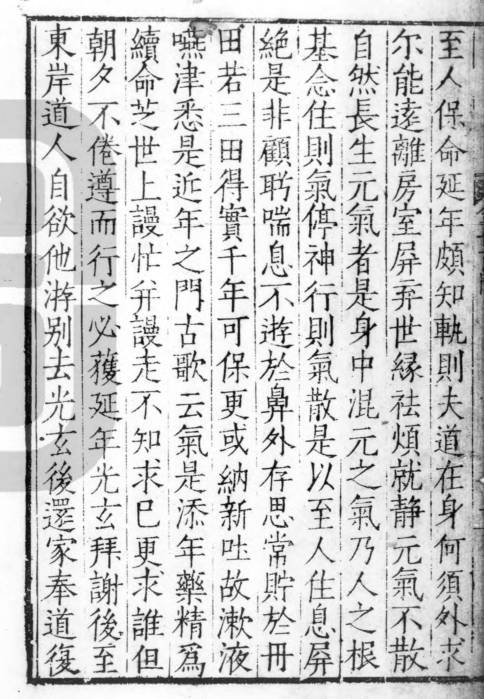 至人保命延年頗知軌則夫道在身何須外求
尓能遠離房室屏弃世縁祛煩就静元氣不散
自然長生元氣者是身中混元之氣乃人之根
基念住則氣停神行則氣散是以至人住息屏
絶是非顧聆喘息不逰於鼻外存思常貯於冊
田若三田得實千年可保更或納新吐故漱液
嚥津悉是近年之門古歌云氣是添年藥精爲
續命芝世上謾忙并謾走不知求巳更求誰但
朝夕不倦遵而行之必獲延年光玄拜謝後至
東岸道人自欲他游别去光玄後還家奉道復